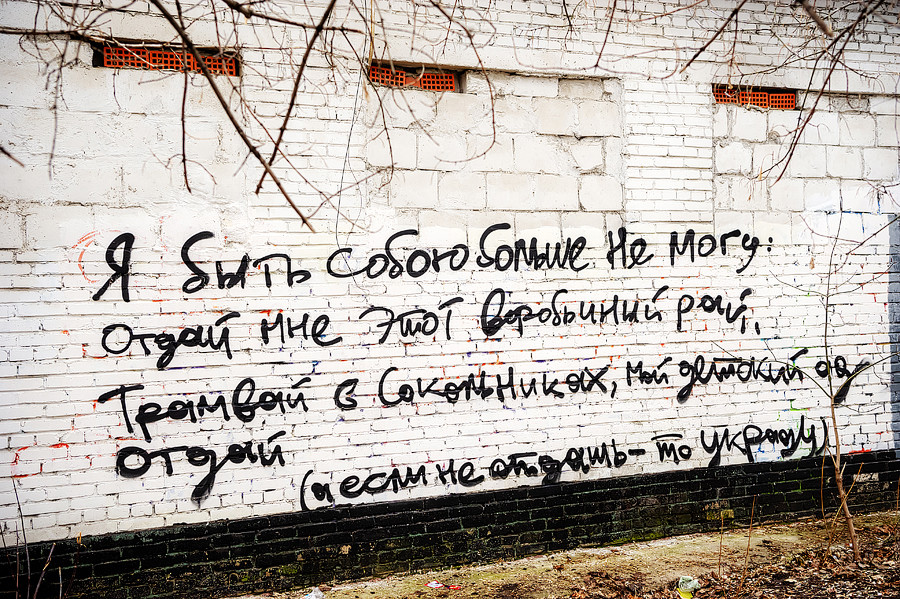 Я быть собою больше не могу:
Отдай мне этот воробьиный рай,
Трамвай в Сокольниках, мой детский ад -
Отдай
(а если не отдашь - то украду)